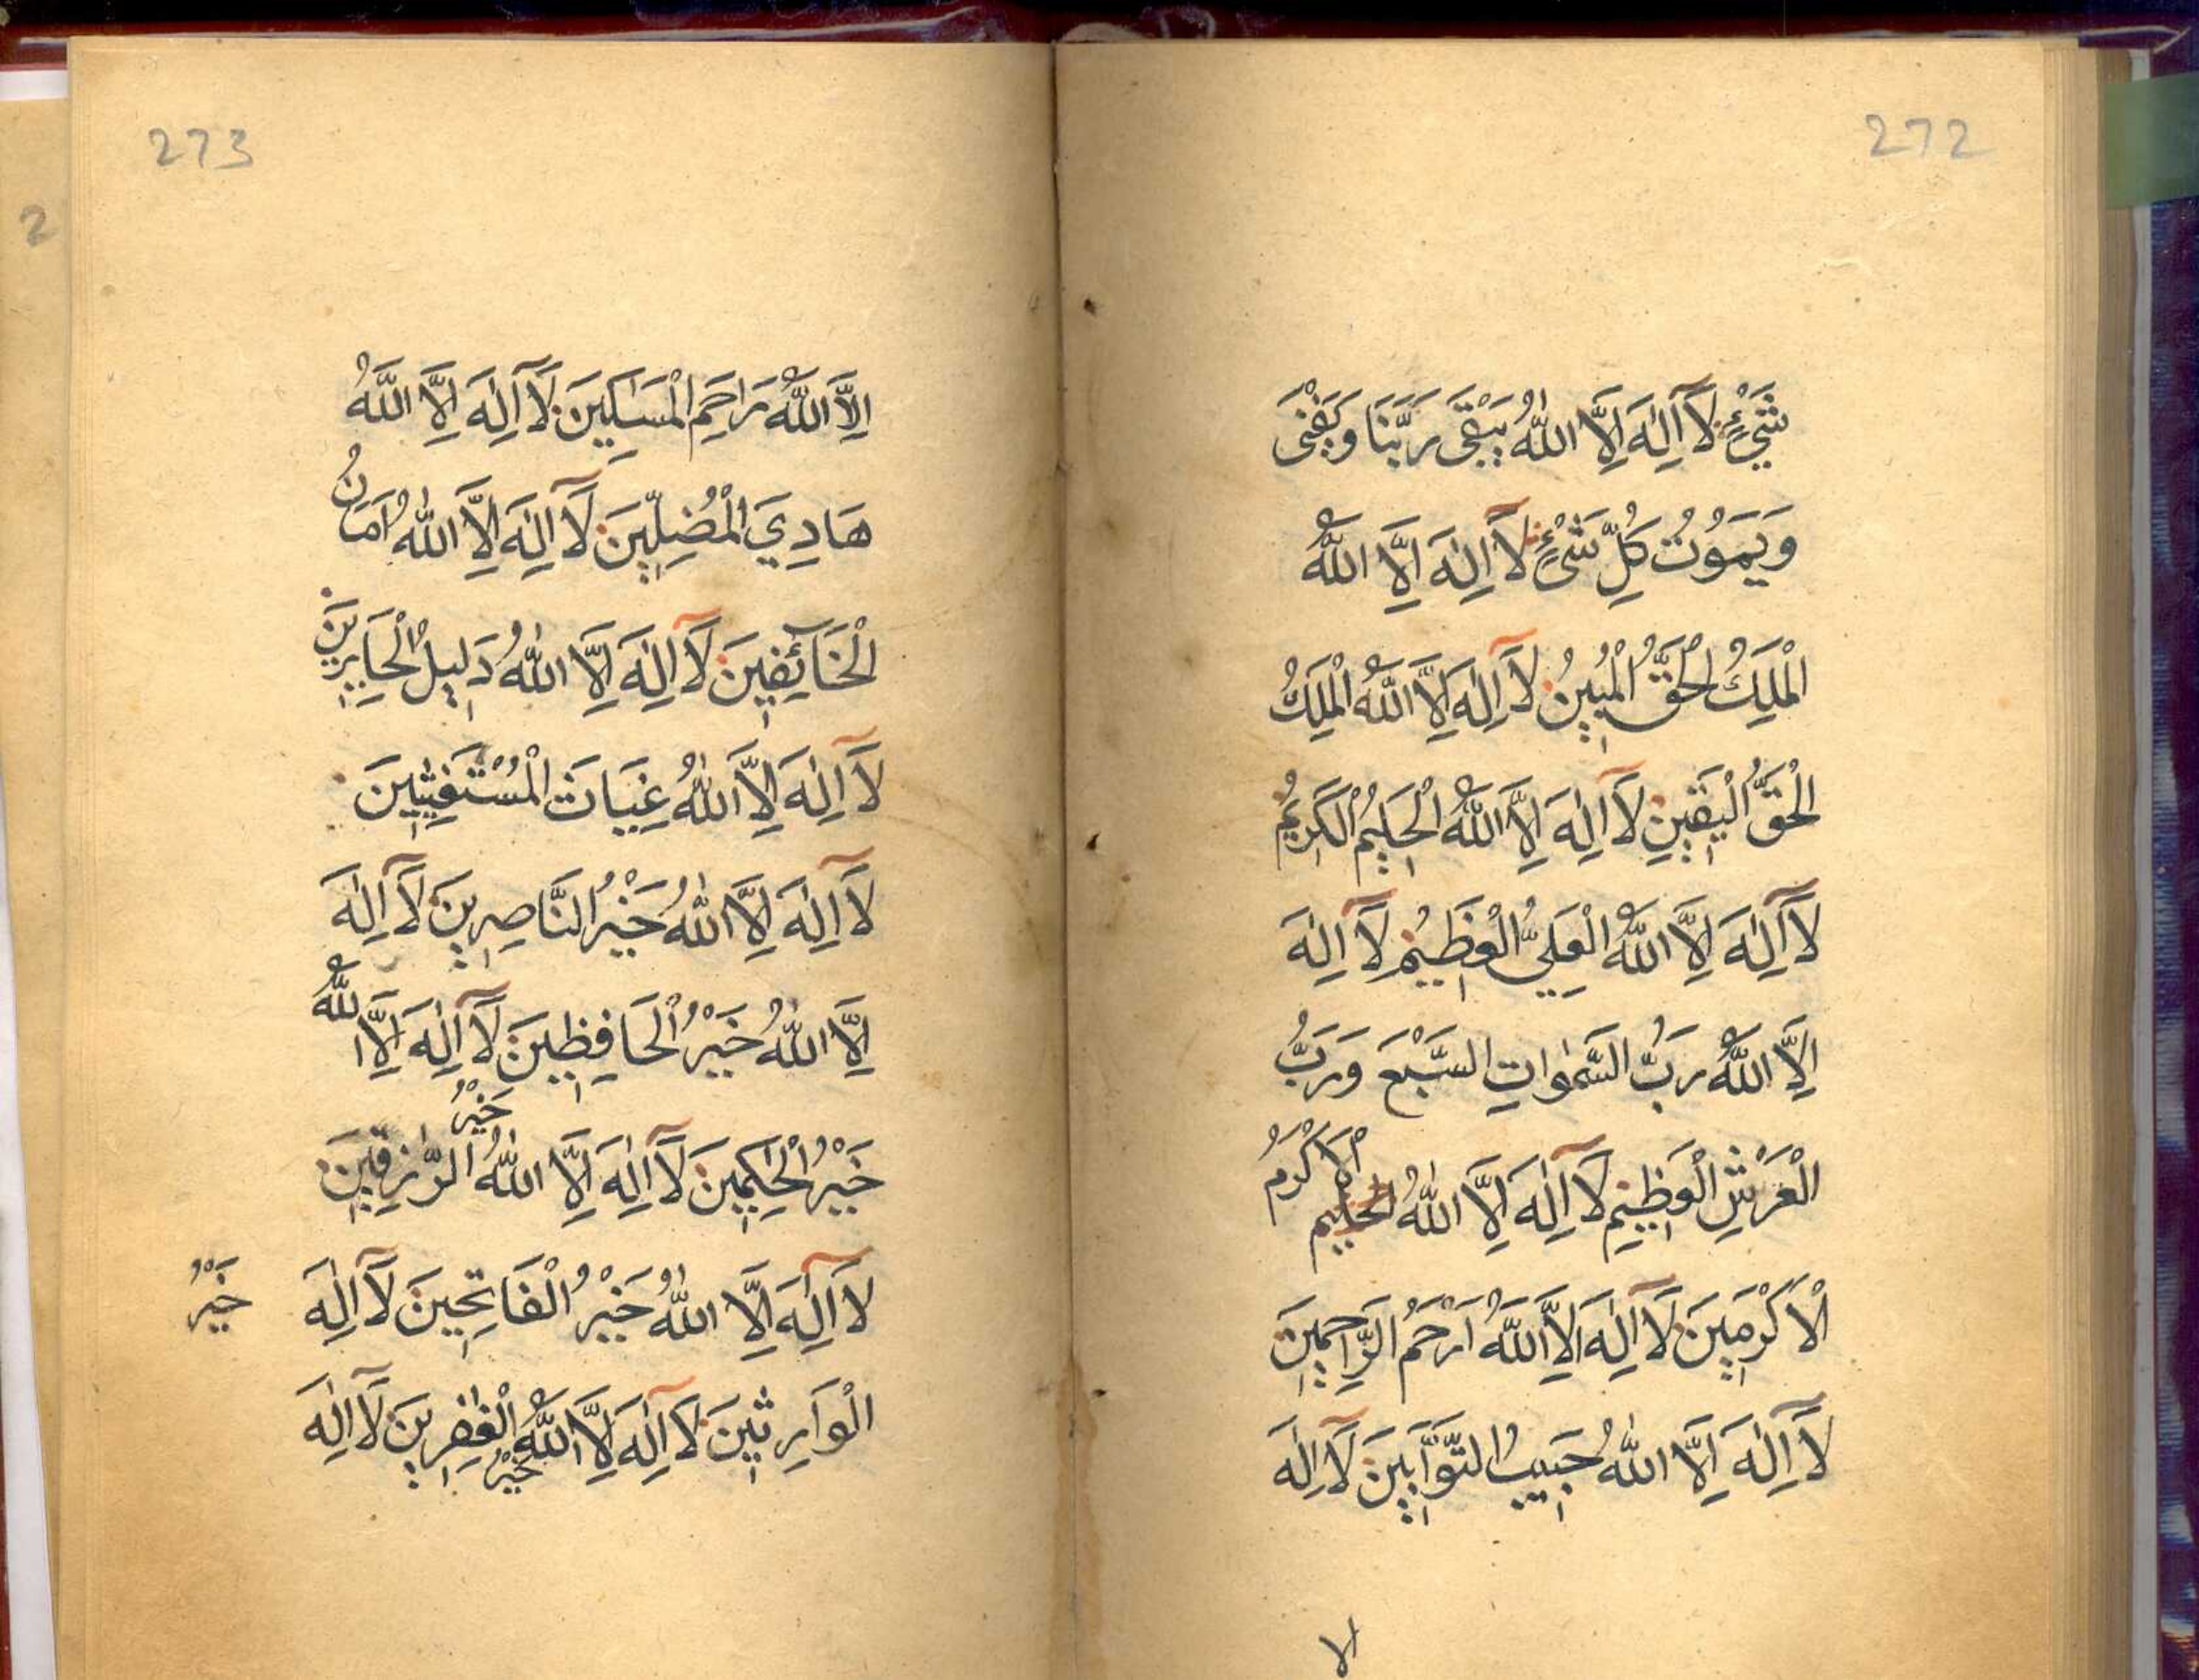 272
شَيْءٍ لَآ اِلٰهَ اِلَّا اللّٰهُ يَبْقٰى رَبُّنَا وَيَفْنٰى
وَيَمُوْتُ كُلِّ شَىْءٍ لَآ اِلٰهَ اِلَّا اللّٰهُ
الْمَلِكُ الْحَقُّ الْمُبِيْنُ لَآ اِلٰهَ اِلَّا اللّٰهُ الْمَلِكُ
الْحَقُّ الْيَقِيْنِ لَآ اِلٰهَ اِلَّا اللّٰهُ الْحَلِيْمُ الْكَرِيْمُ
لَآ اِلٰهَ اِلَّا اللّٰهُ الْعَلِيُّ الْعَظِيْمُ لَآ اِلٰهَ
اِلَّا اللّٰهُ رَبُّ السَّمٰوَاتِ السَّبْعَ وَرَبُّ
الْعَرْشِ الْعَظِيْمِ لَآ اِلٰهَ اِلَّا اللّٰهُ اَلْاَكْرَمُ
الْاَكْرَمِيْنَ لَآ اِلٰهَ اِلَّا اللّٰهُ اَرْحَمُ الرَّاحِمِيْنَ
لَآ اِلٰهَ اِلَّا اللّٰهُ حَبِيْبُ التَّوَّابِيْنَ لَآ اِلٰهَ
الا
273
اِلَّا اللّٰهُ رَاحِمِ الْمَسَاكِيْنَ لَآ اِلٰهَ اِلَّا اللّٰهُ
هَادِيَ الْمُضِلِّيْنَ لَآ اِلٰهَ اِلَّا اللّٰهُ اَمَانُ
الْخَآئِفِيْنَ لَآ اِلٰهَ اِلَّا اللّٰهُ دَلِيْلُ الْحَايِرِيْنَ
لَآ اِلٰهَ اِلَّا اللّٰهُ غِيَاثَ الْمُسْتَغِيْثِيْنَ
لَآ اِلٰهَ اِلَّا اللّٰهُ خَيْرُ النَّاصِرِيْنَ لَآ اِلٰهَ
اِلَّا اللّٰهُ خَيْرُ الْحَافِظِيْنَ لَآ اِلٰهَ اِلَّا اللّٰهُ
خَيْرُ الْحٰكِمِيْنَ لَآ اِلٰهَ اِلَّا اللّٰهُ خَيْرُ الرّٰزِقِيْنَ
لَآ اِلٰهَ اِلَّا اللّٰهُ خَيْرُ الْفَاتِحِيْنَ لَآ اِلٰهَ خَيْرُ
الْوَارِثِيْنَ لَآ اِلٰهَ اِلَّا اللّٰهُ خَيْرُ الْغٰفِرِيْنَ لَآ اِلٰهَ
2